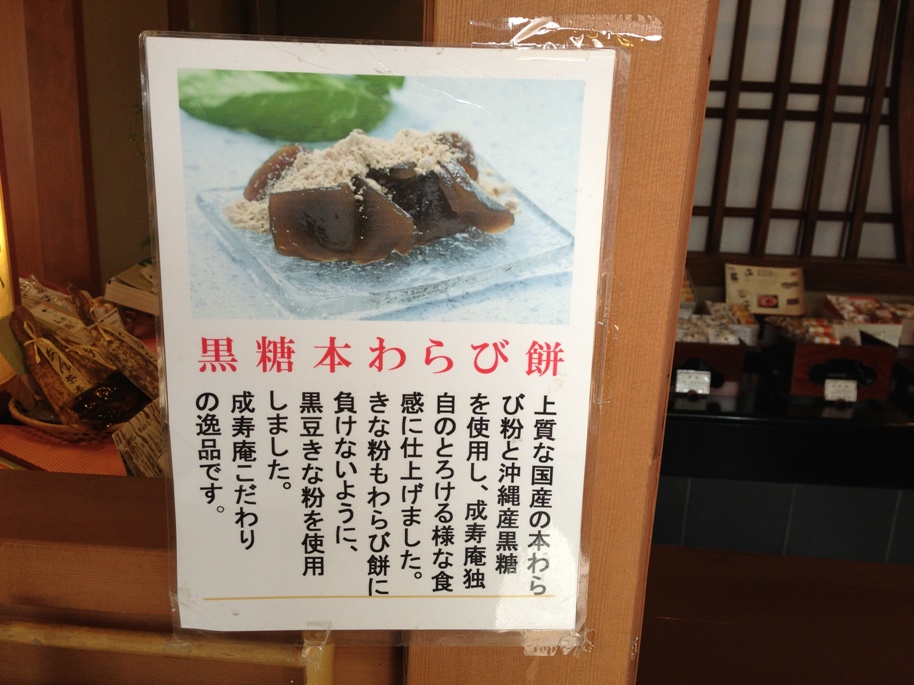 黒糖本わらび餅
上質な国産の本わら
び粉と沖縄産黒糖
を使用し、成寿庵独
自のとろける様な食
感に仕上げました。
きな粉もわらび餅に
負けないように、
黒豆きな粉を使用
しました。
成寿庵こだわり
の逸品です。